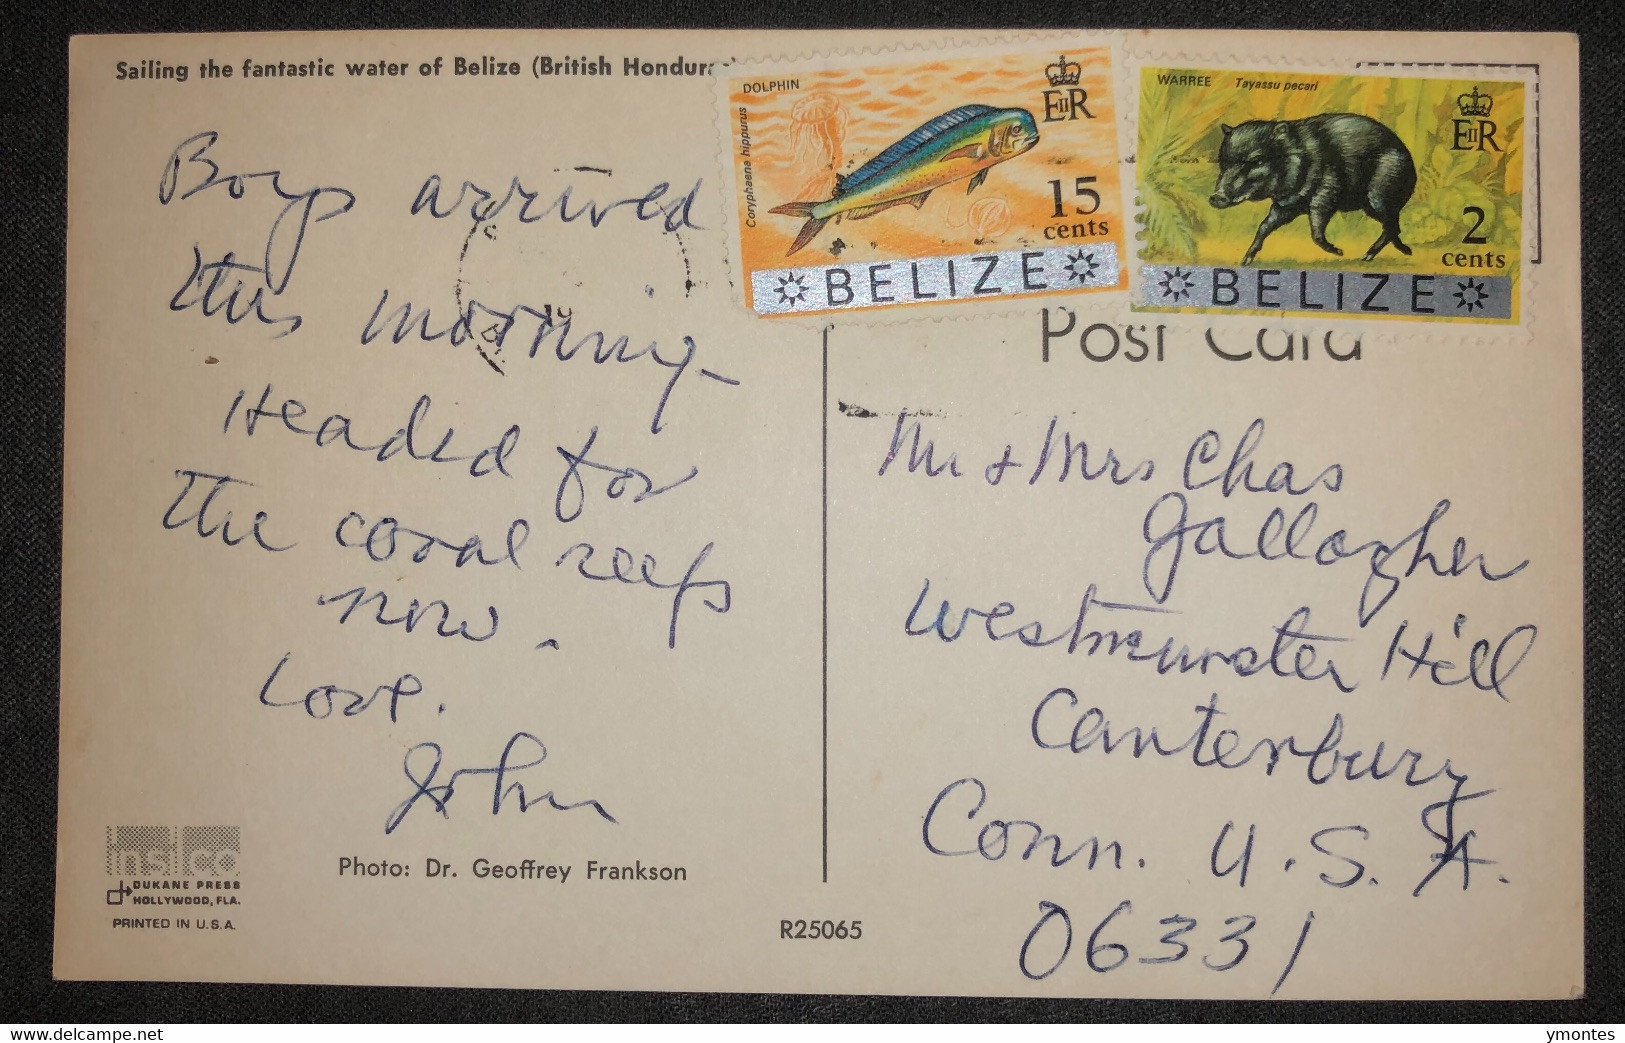 Sailing the fantastic water of Belize (British Hondura
DOLPHIN
Coryphaena hippurus
EIIR
15
cents
BELIZE
WARREE Tayassu pecari
EIIR
2
cents
BELIZE
Post Card
Boys arrived
this morning -
Headed for
the coral reefs
now.
Love.
John
Mr & Mrs Chas
Gallagher
Westminster Hill
Canterbury
Conn. U.S.A.
06331
insco
DUKANE PRESS
HOLLYWOOD, FLA.
PRINTED IN U.S.A.
Photo: Dr. Geoffrey Frankson
R25065
www.delcampe.net
ymontes